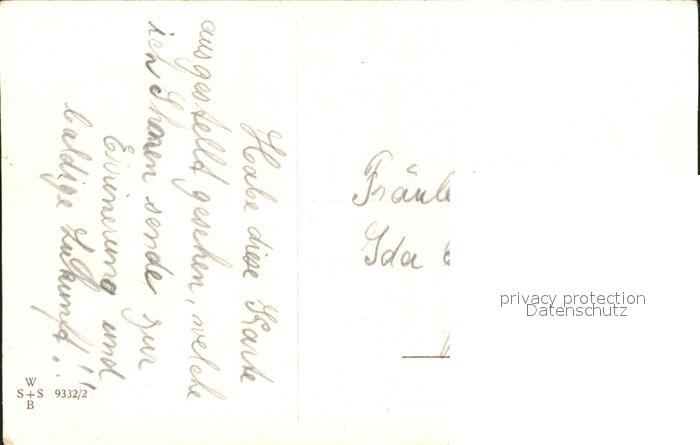 Habe diese Karte
ausgestellt gesehen, welche
ich Ihnen sende zur
Erinnerung und
baldige Zukunft!!
Fräule
Ida
privacy protection
Datenschutz
W
S+S 9332/2
B